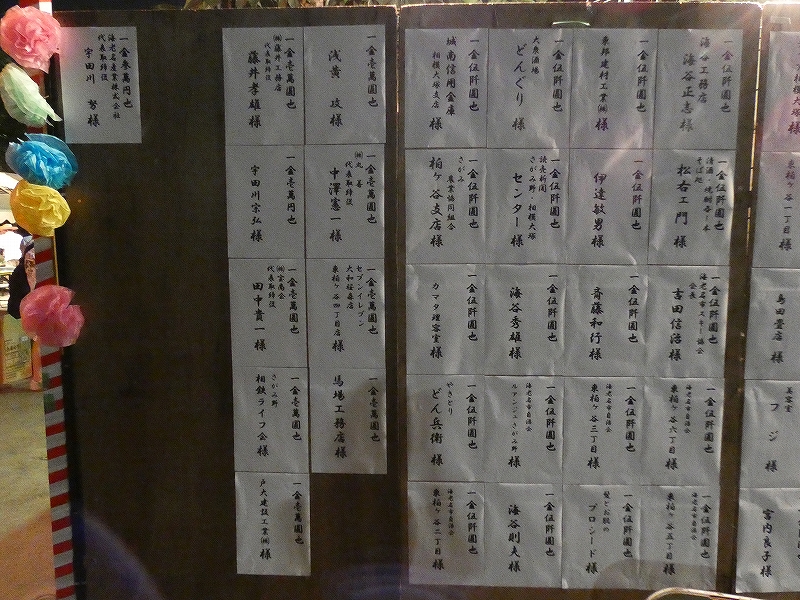 相模大塚支店
東柏ヶ谷一丁目様
島田畳店様
美容室
フジ様
宮内良子様
一金伍阡圓也
海谷工務店
海谷正志様
一金伍阡圓也
清酒・焼酎各一本
そば処
松右エ門様
一金伍阡圓也
海老名市スキー協会
会長
古田信治様
一金伍阡圓也
海老名市自治会
東柏ヶ谷六丁目様
一金伍阡圓也
海老名市自治会
東柏ヶ谷五丁目様
一金伍阡圓也
東邦建材工業㈱様
一金伍阡圓也
伊達敏男様
一金伍阡圓也
斉藤和行様
一金伍阡圓也
海老名市自治会
東柏ヶ谷三丁目様
一金伍阡圓也
髪とお肌の
プロシード様
一金伍阡圓也
大衆酒場
どんぐり様
一金伍阡圓也
読売新聞
さがみ野・相模大塚
センター様
一金伍阡圓也
海谷秀雄様
一金伍阡圓也
海老名市自治会
ルアンジュさがみ野様
一金伍阡圓也
海谷則夫様
一金伍阡圓也
城南信用金庫
相模大塚支店様
一金伍阡圓也
さがみ
農業協同組合
柏ヶ谷支店様
一金伍阡圓也
カマタ理容室様
一金伍阡圓也
やきとり
どん兵衛様
一金伍阡圓也
海老名市自治会
東柏ヶ谷二丁目様
一金壱萬圓也
浅黄政様
一金壱萬圓也
㈱丸善
代表取締役
中澤憲一様
一金壱萬圓也
セブンイレブン
大和桜森店
東柏ヶ谷四丁目店様
一金壱萬圓也
馬場工務店様
一金壱萬圓也
㈱藤井工務店
代表取締役
藤井孝雄様
一金壱萬円也
宇田川宗弘様
一金壱萬圓也
㈱宝商会
代表取締役
田中貴一様
一金壱萬圓也
さがみ野
相鉄ライフ会様
一金壱萬圓也
戸大建設工業㈱様
一金参萬円也
海老名産業株式会社
代表取締役
宇田川努様